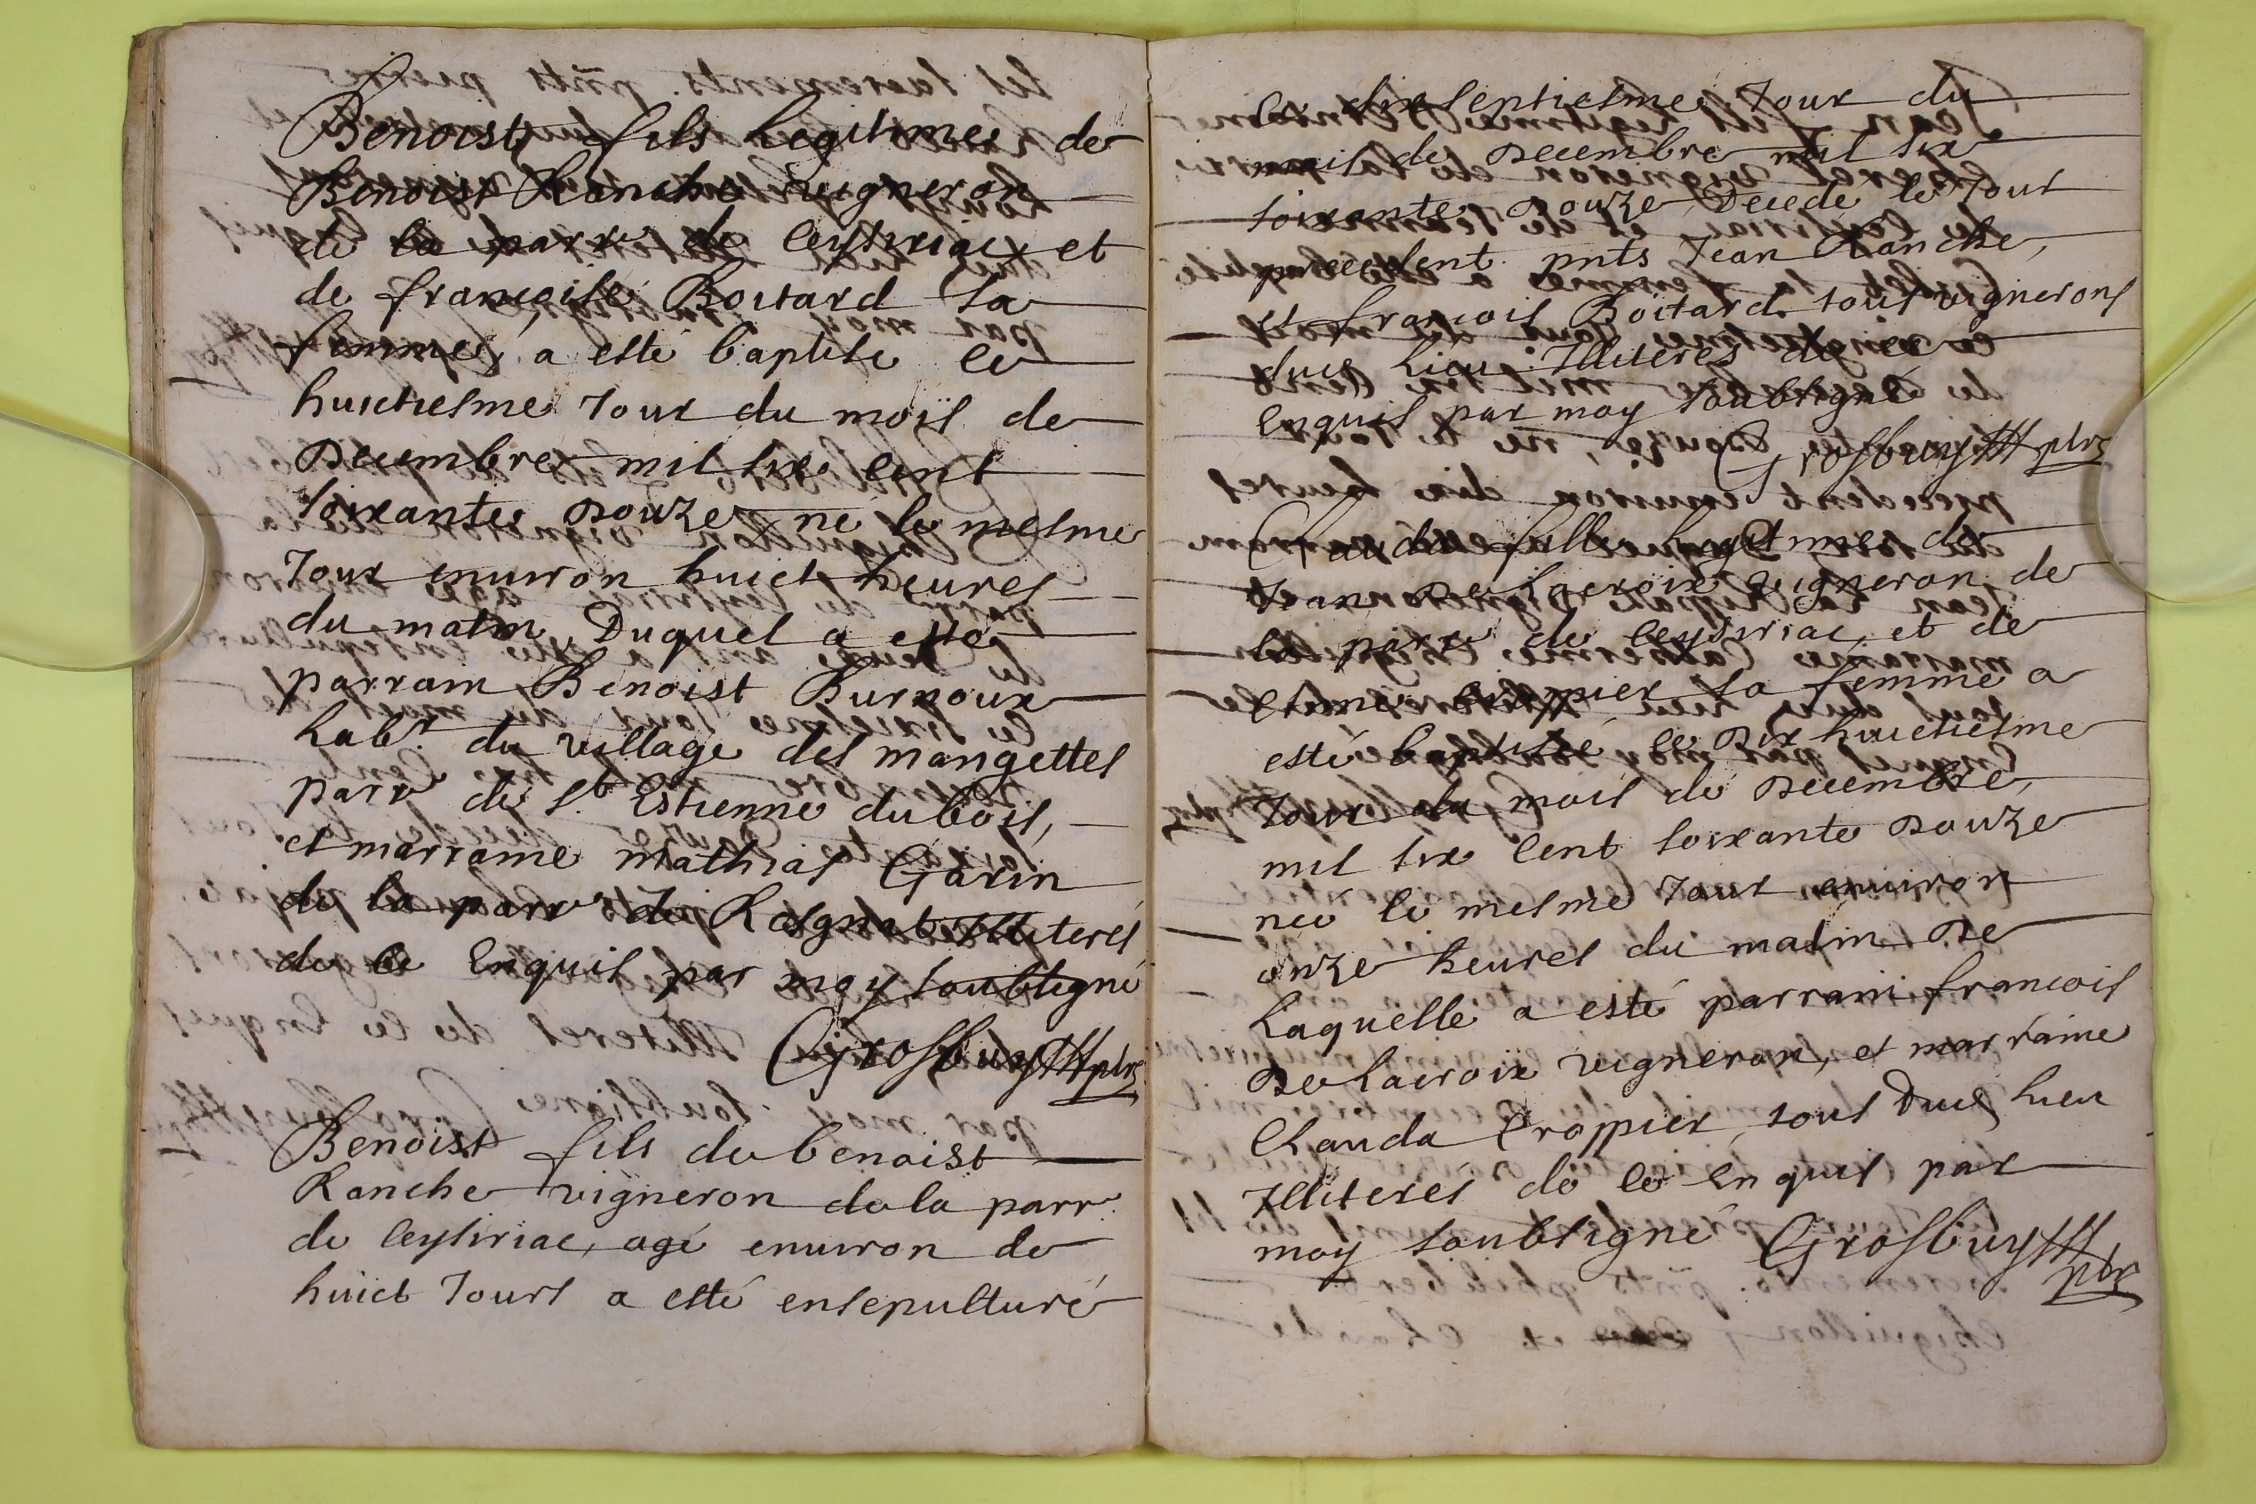 Benoist fils legitime de
Benoist Ranche vigneron
de la parr de Ceysiriac et
de françoise Boitard sa
femme, a esté baptise le
huictiesme Jour du mois de
Decembre mil six cent
soixante douze né le mesme
Jour enuiron huict heures
du matin, Duquel a esté
parrain Benoist Burnoux
habt du village des mangettes
parr de st Estienne dubois,
et marraine mathias Garin
de la parr de Rosgnat Illiteres
de ce Enquis par moy soubsigné
Grosbuys ptre
Benoist fils de benoist
Ranche vigneron de la parr
de Ceysiriac, agé enuiron de
huict Jours a esté ensepulturé
le dixseptiesme Jour du
mois de Decembre mil six
soixante douze, Decede le Jour
precedent pnts Jean Ranche,
et françois Boitard tous vignerons
dud lieu Illiteres de ce
Enquis par moy soubsigné
Grosbuys ptre
Clauda fille legitime de
Jean De Lacroix vigneron de
la parr de Ceysiriac, et de
Croppier sa femme a
esté baptisée le Dix huictiesme
Jour du mois de Decembre,
mil six cent soixante douze
neé le mesme Jour enuiron
onze heures du matin De
Laquelle a esté parrain françois
De Lacroix vigneron, et marraine
Clauda Croppier, tous Dud lieu
Illiteres de ce Enquis par
moy soubsigné Grosbuys
ptre